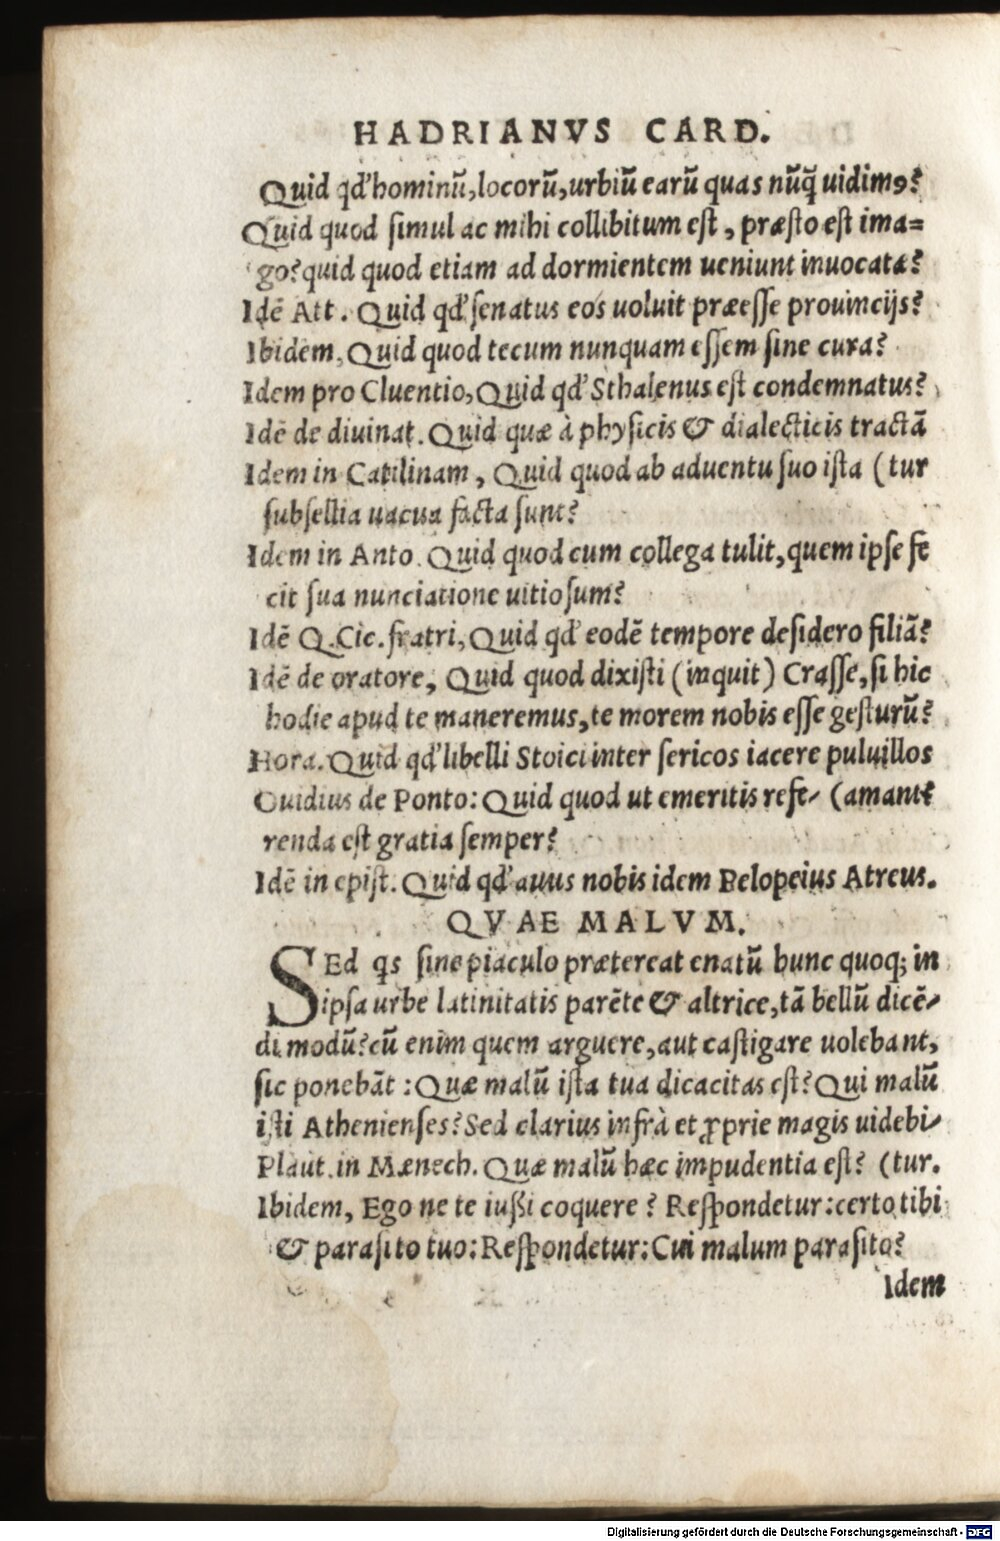 HADRIANVS CARD.
Quid qđ hominũ, locorũ, urbiũ earũ quas nũq̃ uidimꝰ?
Quid quod ſimul ac mihi collibitum eſt, præſto eſt ima=
go? quid quod etiam ad dormientem ueniunt inuocatæ?
Idẽ Att. Quid qđ ſenatus eos uoluit præeſſe prouincijs?
Ibidem, Quid quod tecum nunquam eſſem ſine cura?
Idem pro Cluentio, Quid qđ Sthalenus eſt condemnatus?
Idẽ de diuinat. Quid quæ à phyſicis & dialecticis tractã
Idem in Catilinam, Quid quod ab aduentu ſuo iſta (tur
ſubſellia uacua facta ſunt?
Idem in Anto. Quid quod cum collega tulit, quem ipſe fe
cit ſua nunciatione uitioſum?
Idẽ Q. Cic. fratri, Quid qđ eodẽ tempore deſidero filiã?
Idẽ de oratore, Quid quod dixiſti (inquit) Craſſe, ſi hic
hodie apud te maneremus, te morem nobis eſſe geſturũ?
Hora. Quid qđ libelli Stoici inter ſericos iacere puluillos
Ouidius de Ponto: Quid quod ut emeritis refe- (amant?
renda eſt gratia ſemper?
Idẽ in epiſt. Quid qđ auus nobis idem Pelopeius Atreus.
QVAE MALVM.
SEd q̃s ſine piaculo prætereat enatũ hunc quoq; in
ipſa urbe latinitatis parẽte & altrice, tã bellũ dicẽ-
di modũ? cũ enim quem arguere, aut caſtigare uolebant,
ſic ponebãt: Quæ malũ iſta tua dicacitas eſt? Qui malũ
iſti Athenienſes? Sed clarius infrà et ꝓprie magis uidebi-
Plaut. in Mænech. Quæ malũ hæc impudentia eſt? (tur.
Ibidem, Ego ne te iußi coquere? Reſpondetur: certo tibi
& paraſito tuo: Reſpondetur: Cui malum paraſito?
Idem
Digitalisierung gefördert durch die Deutsche Forschungsgemeinschaft - DFG